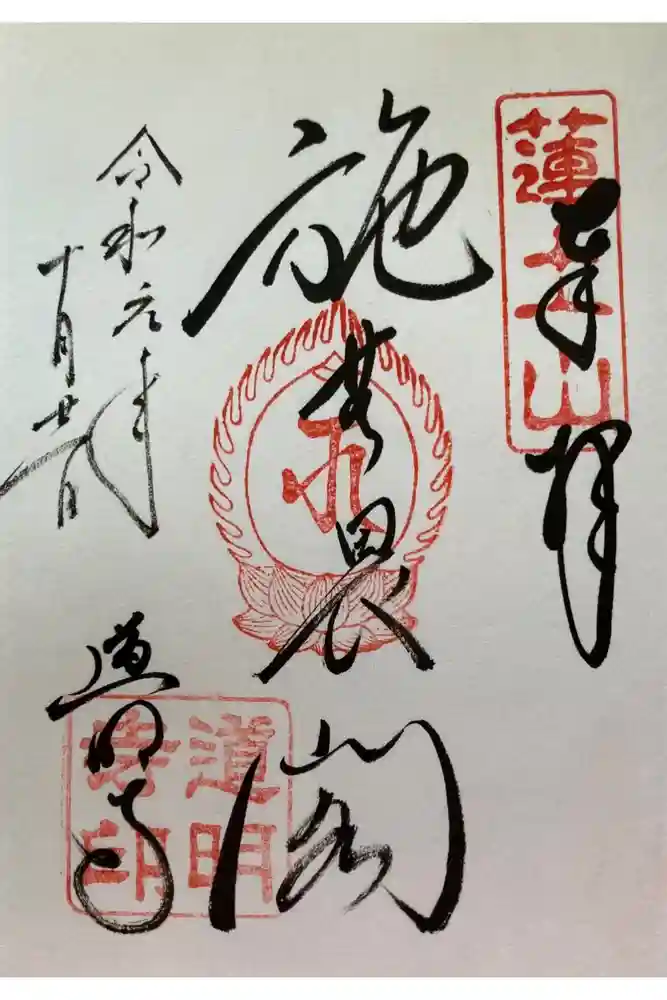 奉拝
蓮土山
施無畏閣
令和元年
十月廿一日
道明寺
道明
寺印